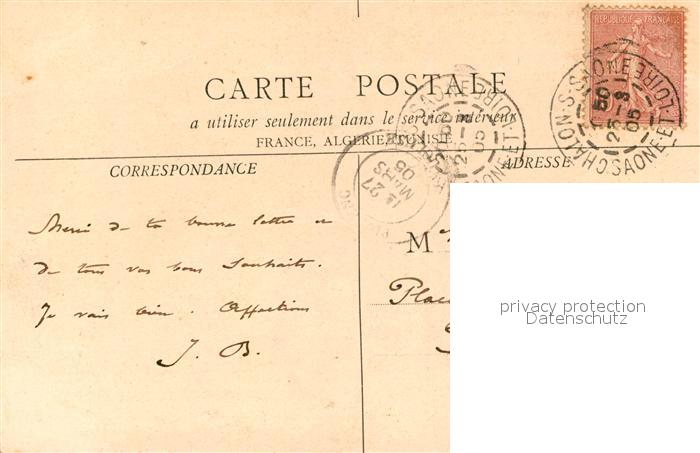 RÉPUBLIQUE FRANÇAISE
CARTE POSTALE
a utiliser seulement dans le service intérieur
FRANCE, ALGERIE, TUNISIE
CHALON-S-SAONE
SAONE-ET-LOIRE
25-3
05
CORRESPONDANCE
ADRESSE
27
MARS
05
Merci de ta bonne lettre et
de tous vos bons souhaits.
Je vais bien. Affections
J. B.
M
Place
privacy protection
Datenschutz